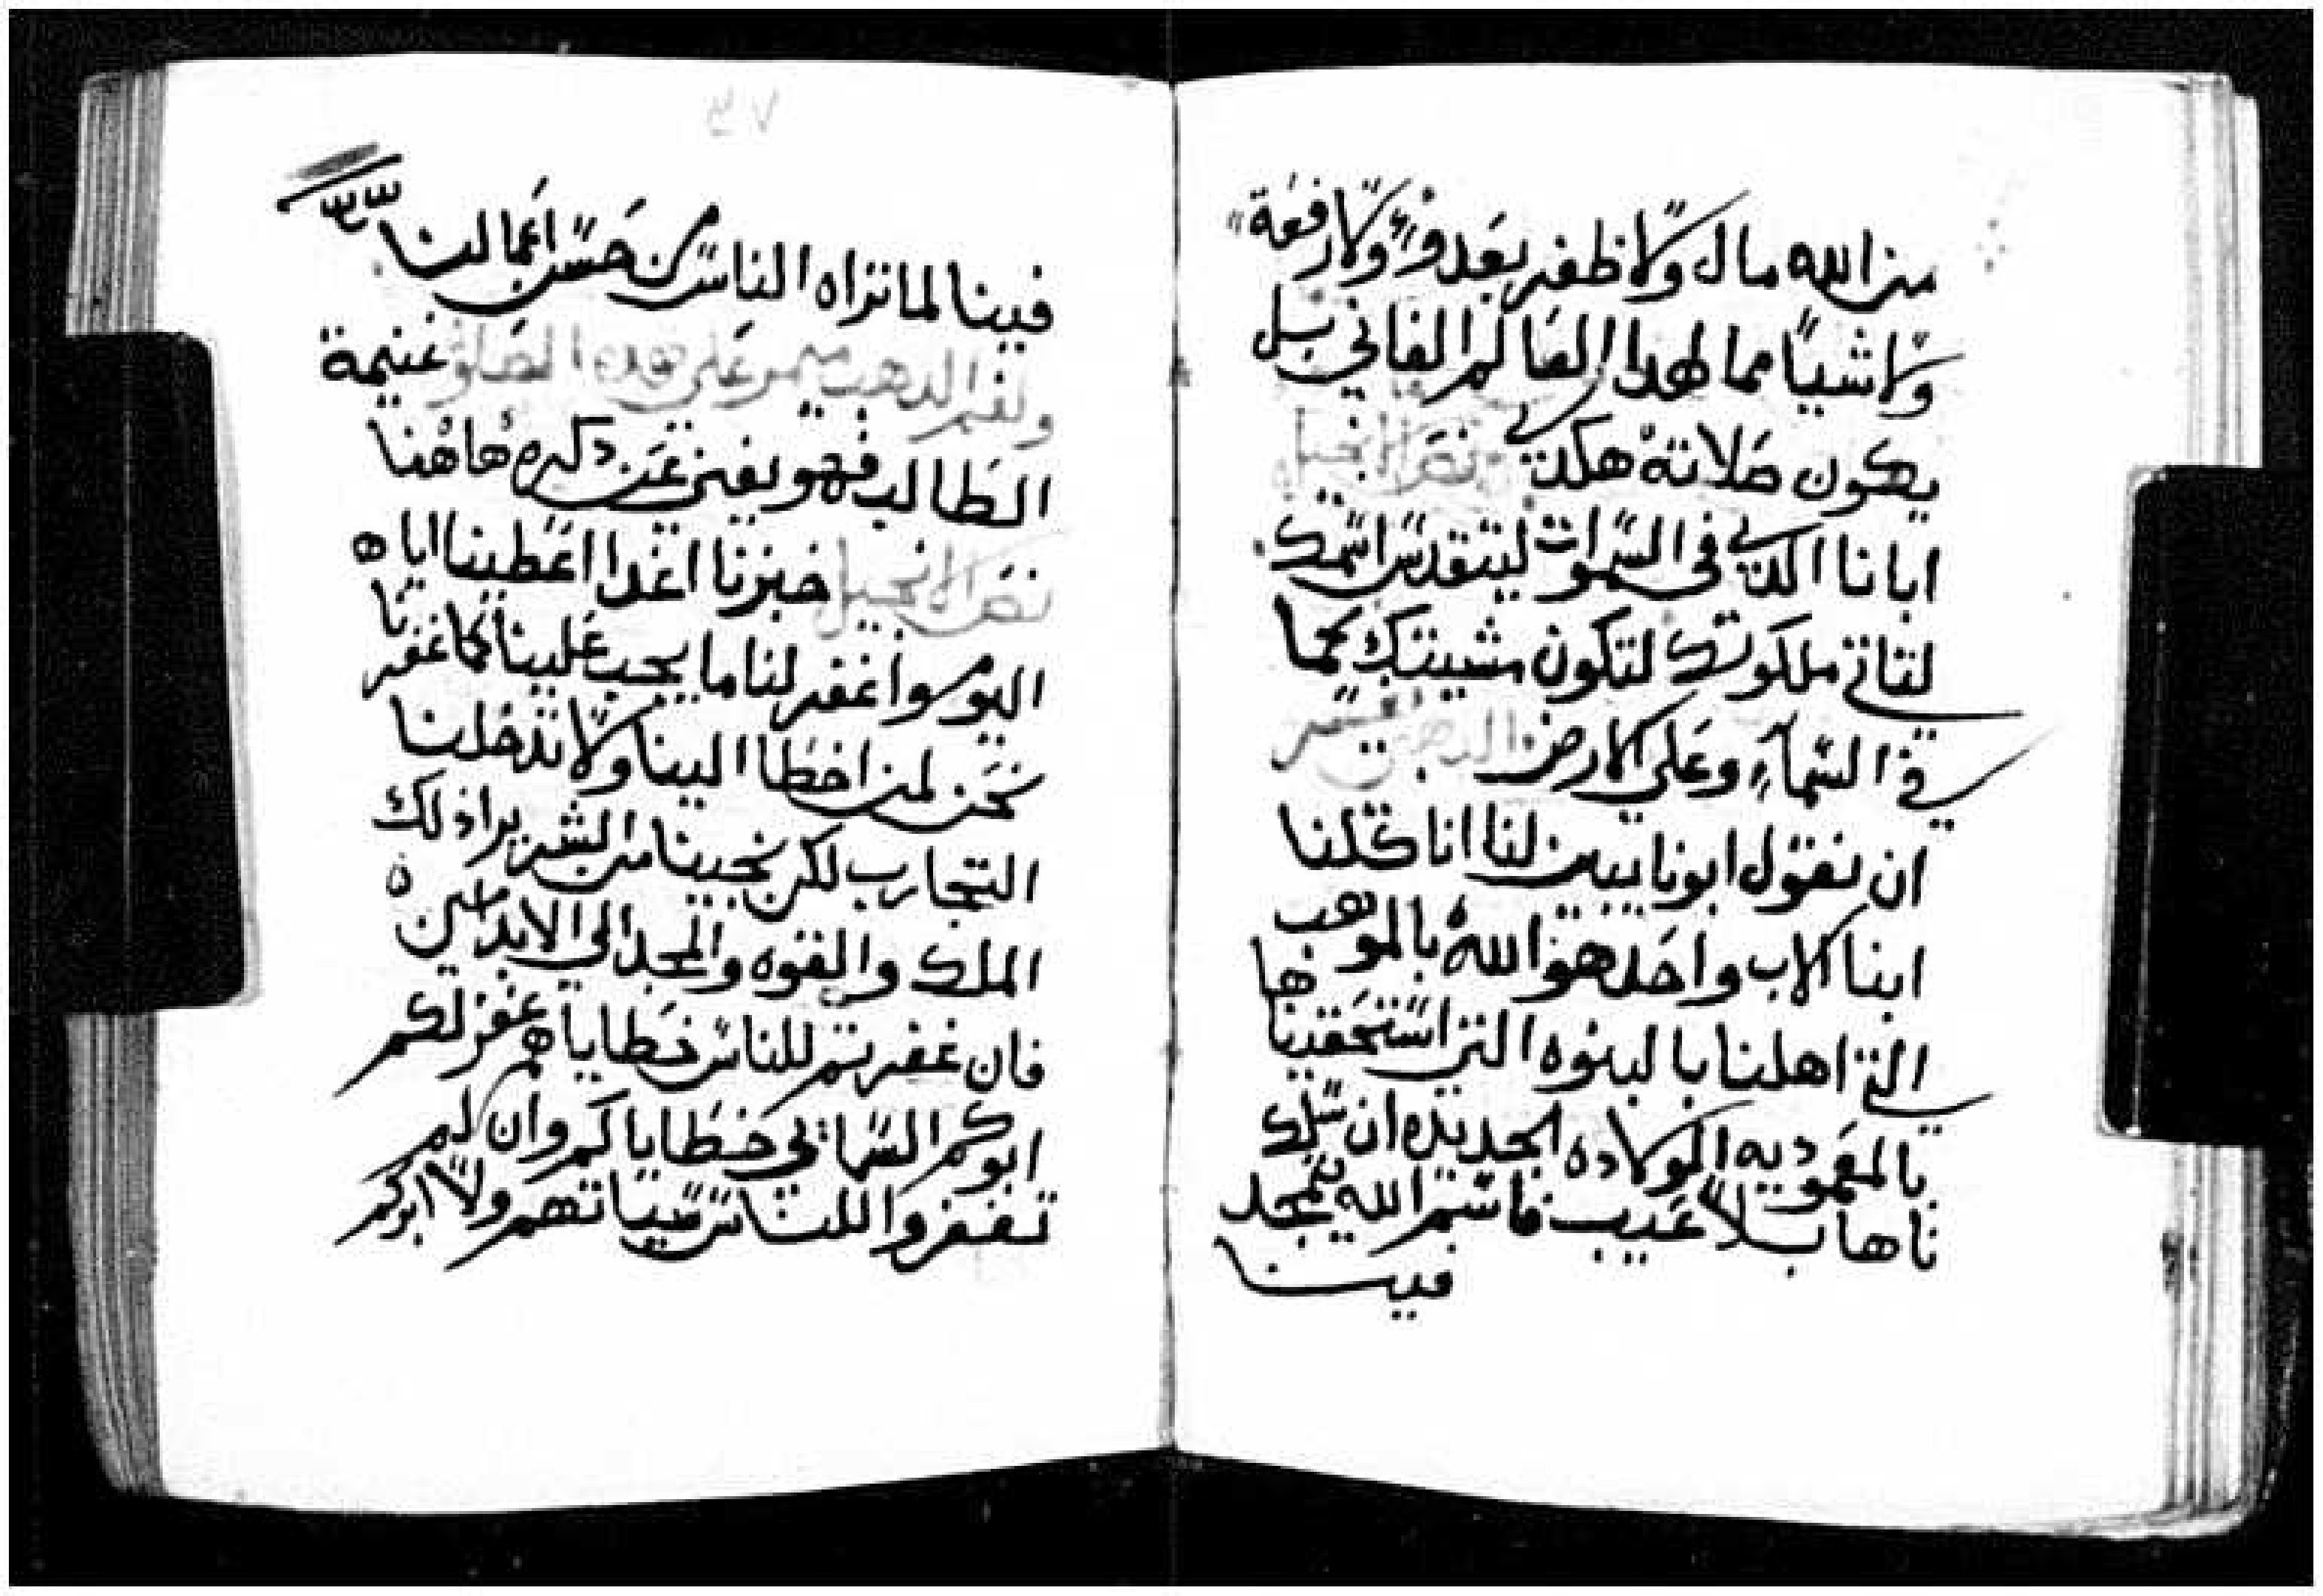 من الله مال ولا ظفر بعدو ولا رفعة
ولا شيا مما لهدا العالم الفاني بل
يكون صلاته هكدي نص الانجيل
ابانا الدي في السموات ليتقدس اسمك
لتاتي ملكوتك لتكون مشيتك كما
في السماء وعلى الارض الدهب يفسر
ان نقول ابونا يبين لنا انا كلنا
ابنا لاب واحد هو الله بالموهب
التي اهلنا بالبنوه التي استحقيناها
بالمعموديه المولاده الجديده ان نمسك
ناها بلا عيب فاسم الله يتمجد
فينا
٤٧
فينا لما تراه الناس من حسن اعمالنا
ولفم الدهب ميمر على هده الصلوة غنيمة
الطالب فهو يغني عن دكره هاهنا
نص الانجيل خبزنا اغدا اعطينا اياه
اليوم واغفر لنا ما يجب علينا كما غفرنا
نحن لمن اخطا الينا ولا تدخلنا
التجارب لكن نجينا من الشرير اذ لك
الملك والقوه والمجد الى الابد امين
فان غفرتم للناس خطاياهم غفر لكم
ابوكم السماني خطاياكم وان لم
تغفروا للناس سياتهم ولا ابوكم